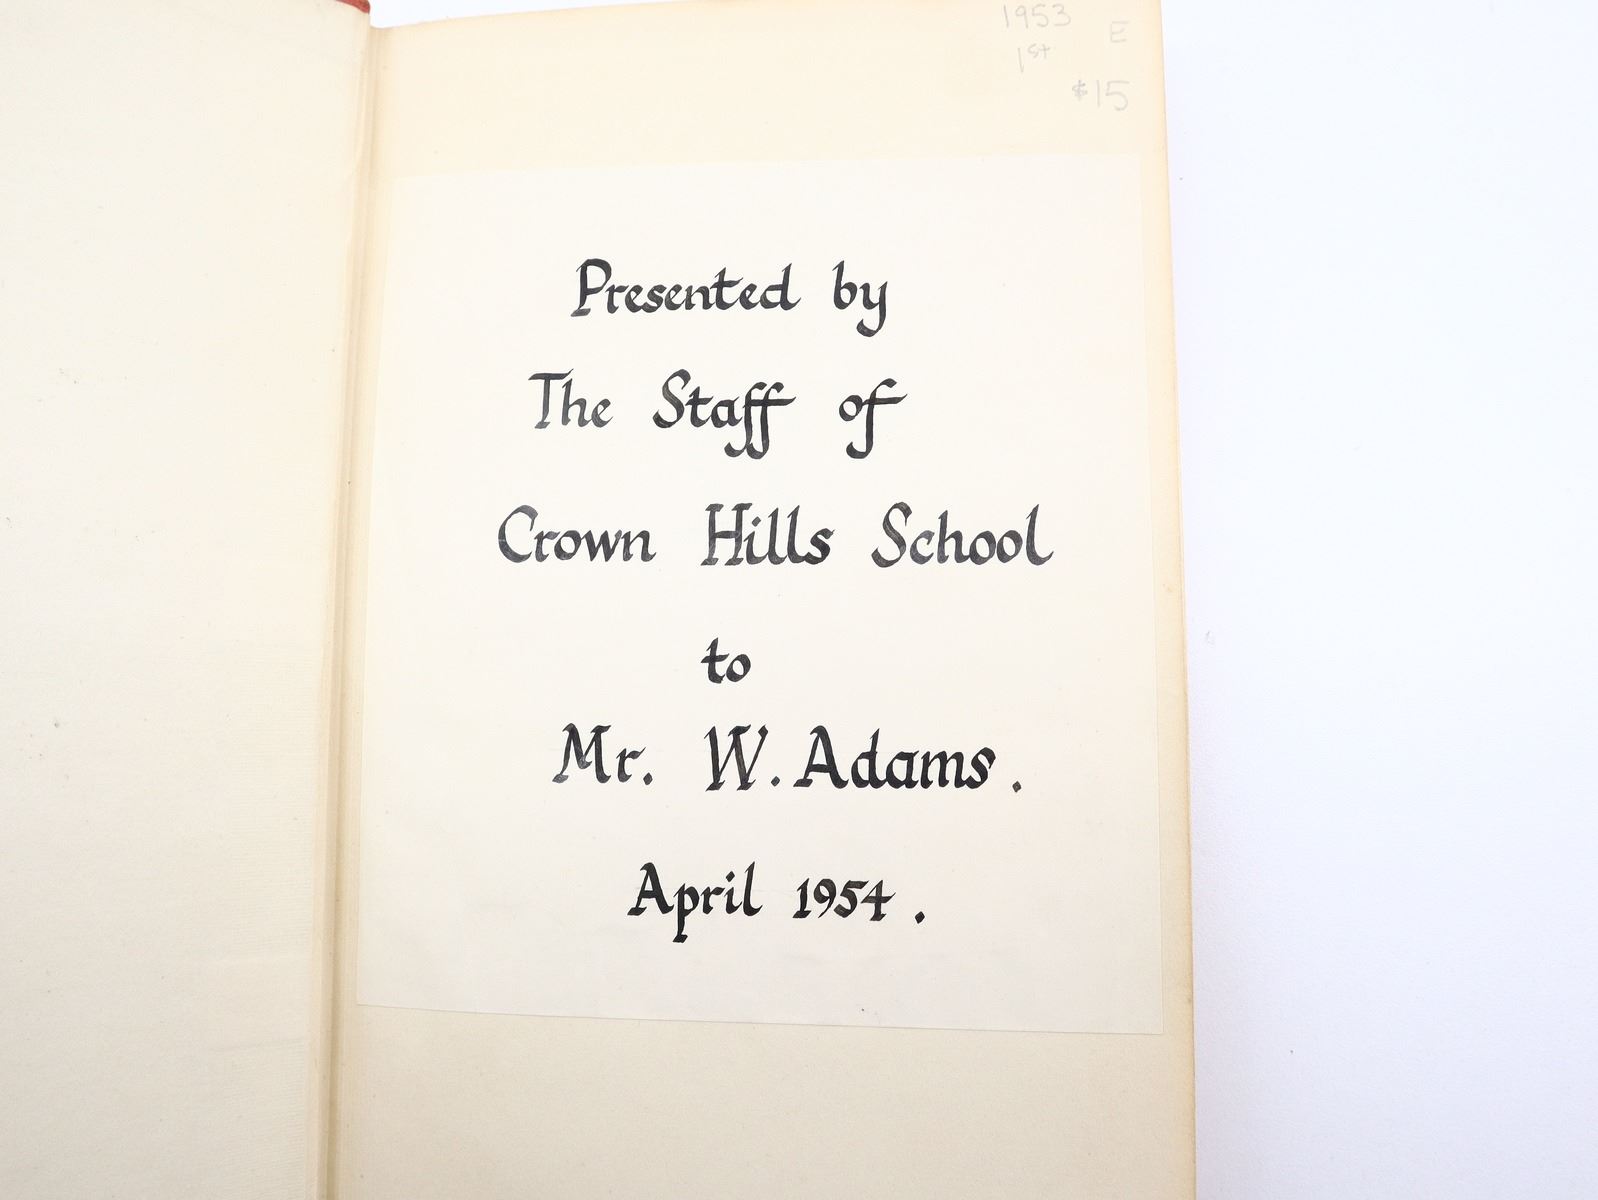 1953 E
1st
$15
Presented by
The Staff of
Crown Hills School
to
Mr. W. Adams.
April 1954.